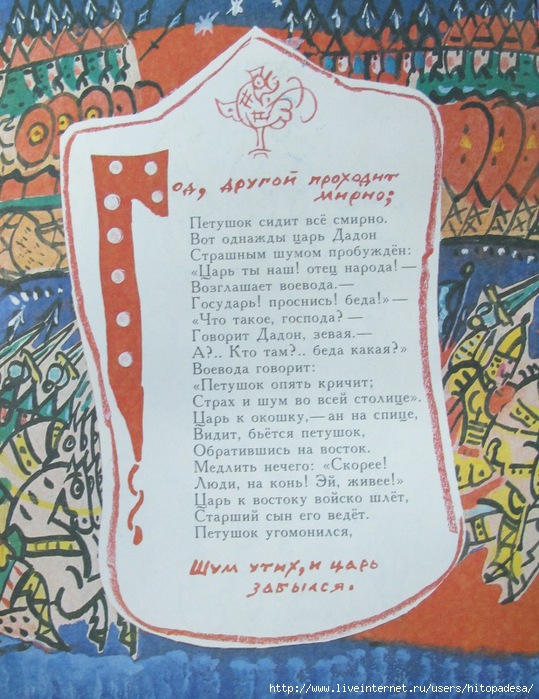 Год, другой проходит
мирно;
Петушок сидит всё смирно.
Вот однажды царь Дадон
Страшным шумом пробуждён:
«Царь ты наш! отец народа! —
Возглашает воевода.—
Государь! проснись! беда!» —
«Что такое, господа? —
Говорит Дадон, зевая.—
А?.. Кто там?.. беда какая?»
Воевода говорит:
«Петушок опять кричит;
Страх и шум во всей столице».
Царь к окошку,— ан на спице,
Видит, бьётся петушок,
Обратившись на восток.
Медлить нечего: «Скорее!
Люди, на конь! Эй, живее!»
Царь к востоку войско шлёт,
Старший сын его ведёт.
Петушок угомонился,
Шум утих, и царь
забылся.
http://www.liveinternet.ru/users/hitopadesa/